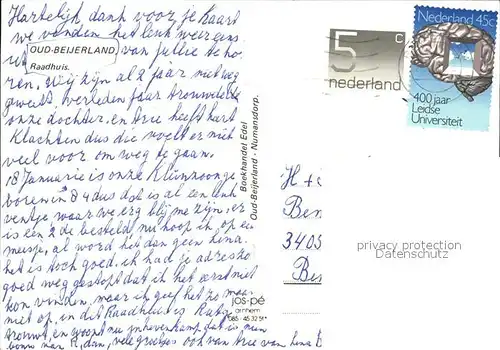 Hartelijk dank voor je kaart
we vonden het leuk weer eens
iets van jullie te ho
ren. Wij zijn al 2 jaar niet weg
geweest, verleden jaar trouwde
onze dochter, en Arie heeft hart
klachten dus die voelt er niet
veel voor om weg te gaan.
18 Januarie is onze kleinzoon ge
boren in 84 dus dat is al een leuk
ventje waar we erg blij mee zijn, er
is een 2de besteld nu hoop ik op een
meisje, al word het dan geen
het is toch goed, ik had je adres zo
goed weg gestopt dat ik het eerst niet
kon vinden, maar ik geef het zo maar
niet op, in dit Raadhuis is
trouwt, en woont nu in dat is
dan, veel groetjes ook van Arie van
OUD-BEIJERLAND
Raadhuis.
Boekhandel Edel
Oud-Beijerland - Numansdorp.
jos-pé
arnhem
085-45 32 51*
5 c
nederland
Nederland 45c
400 jaar
Leidse
Universiteit
H +
Ben
3405
Be
privacy protection
Datenschutz